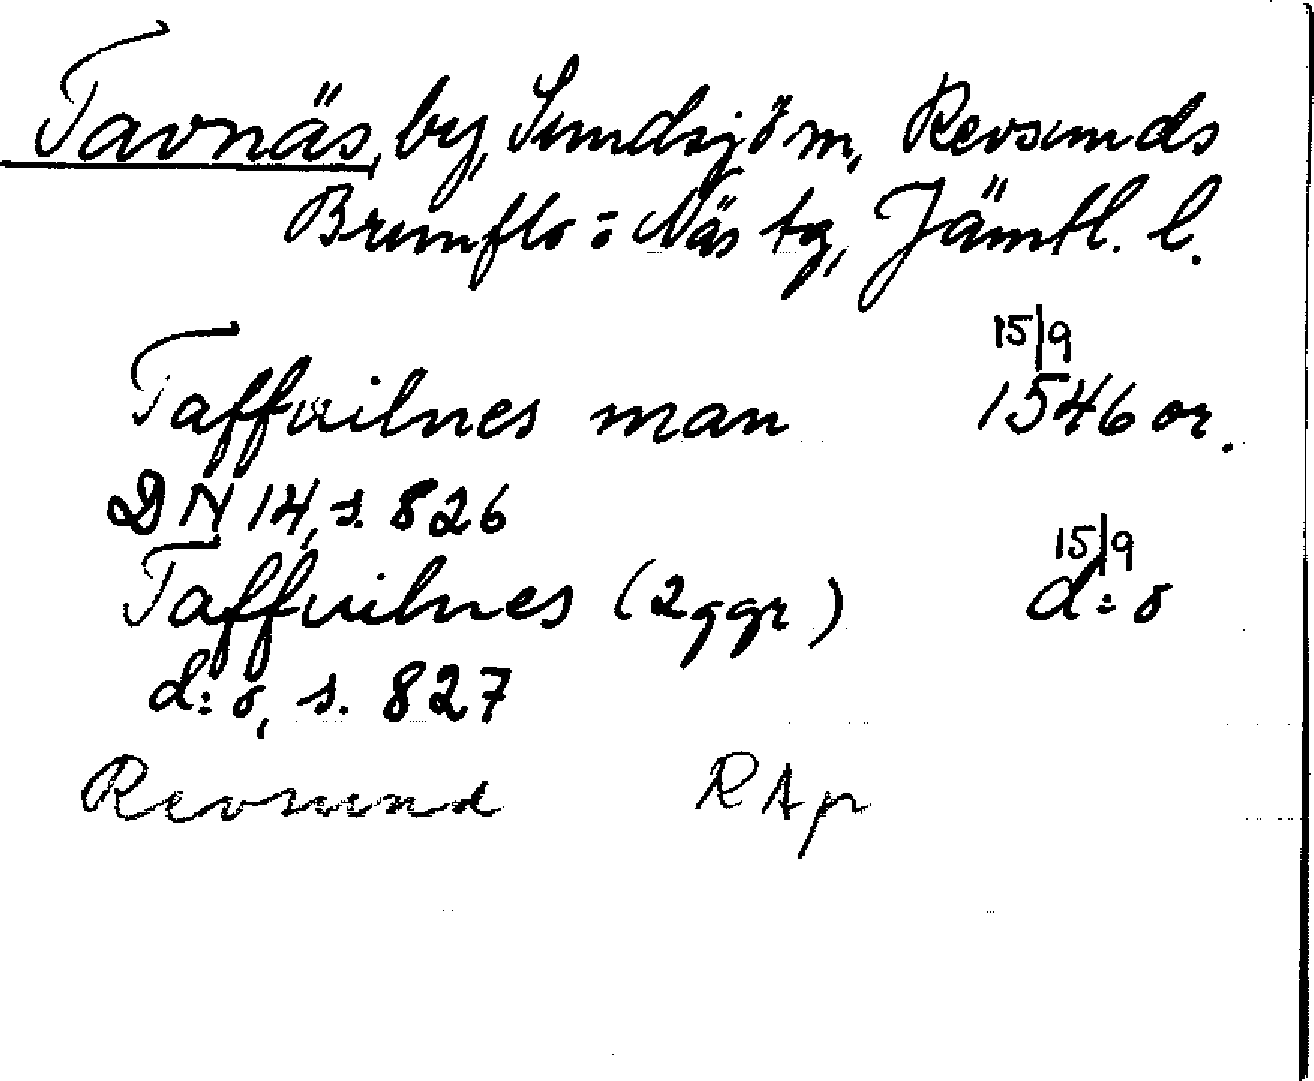 Tavnäs, by, Sundsjö sn, Revsunds
Brunflo = Näs tg, Jämtl. l.
15/9
Taffuilnes man 1546 or.
DN 14, s. 826
15/9
Taffuilnes (2 ggr) d:o
d:o, s. 827
Revsund RAp